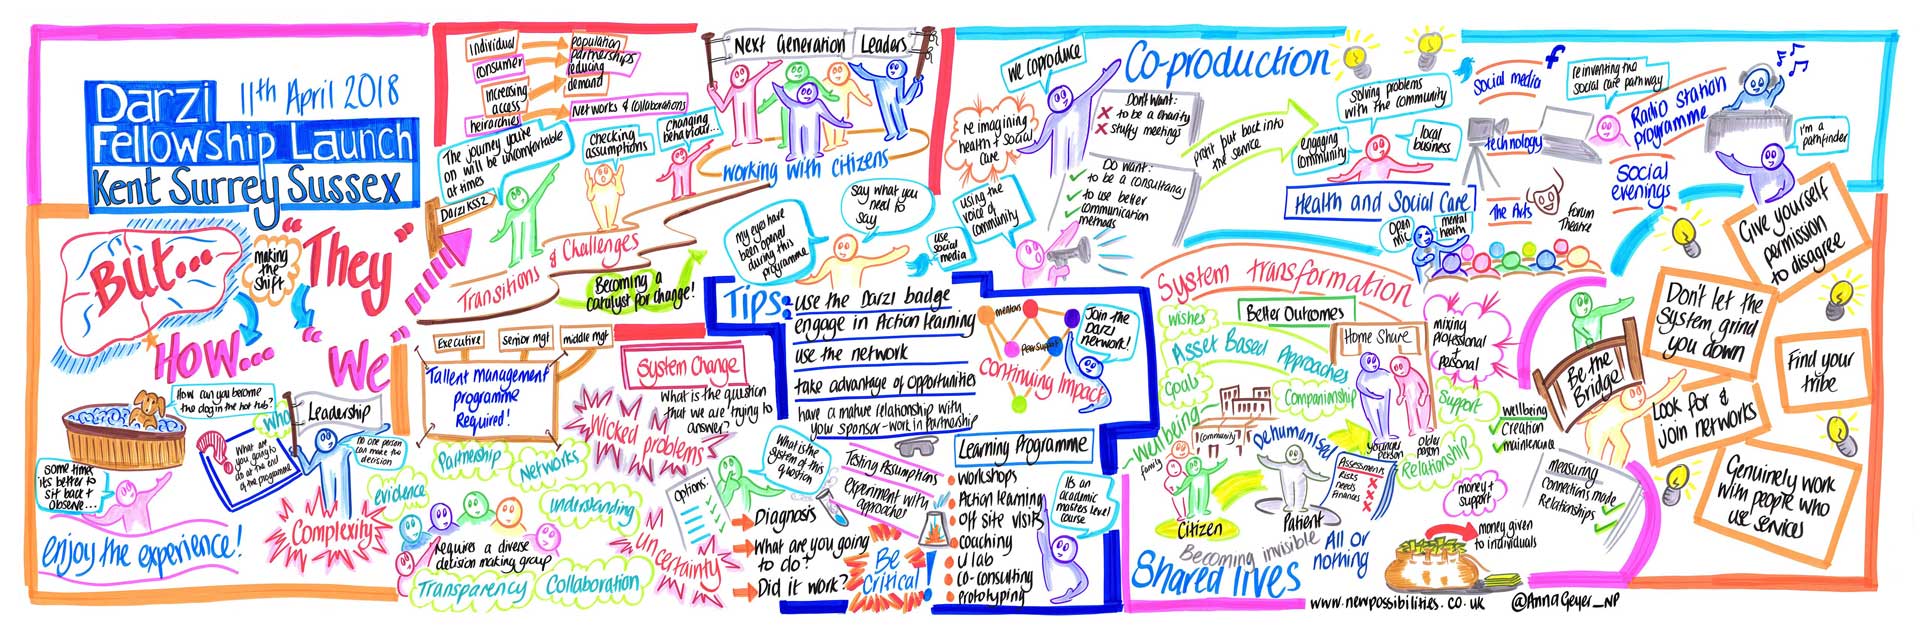 Darzi
Fellowship Launch
Kent Surrey Sussex
11th April 2018
But...
making
the
shift
"They"
HOW...
"We"
How can you become
the dog in the hot tub?
Who
Leadership
What are
you going to
do at the end
of the programme
no one person
can make the
decision
some times
its better to
sit back +
observe...
enjoy the experience!
Complexity
Individual
population
consumer
partnerships
reducing
demand
increasing
access
heirarchies
networks & collaborations
The journey you're
on will be uncomfortable
at times
Checking
assumptions
Changing
behaviour...
Darzi KSS
Transitions
& Challenges
Becoming a
catalyst for change!
Next Generation Leaders
working with citizens
My eyes have
been opened
during this
programme
Say what you
need to
say
use
social
media
Executive
senior mgt
middle mgt
Tallent management
programme
Required!
System Change
What is the question
that we are trying to
answer?
Wicked
problems
Partnership
Networks
evidence
understanding
Requires a diverse
decision making group
Transparency
Collaboration
uncertainty
Options:
What is the
system of this
question
Diagnosis
What are you going
to do?
Did it work?
Testing Assumptions
experiment with
approaches
Be
Critical!
Tips:
use the Darzi badge
engage in Action learning
use the network
take advantage of opportunities
have a mature relationship with
your sponsor - work in partnership
mentors
Peer support
Continuing Impact
Join the
Darzi
network!
Learning Programme
Workshops
Action learning
Off site visits
Coaching
U lab
Co-consulting
Prototyping
Its an
academic
masters level
course
we coproduce
Co-production
re imagining
health & social
care
Don't want:
to be a charity
stuffy meetings
Do want:
to be a consultancy
to use better
communication
methods
using the
voice of
community
profit put back into
the service
engaging
community
Solving problems
with the community
local
business
Health and Social Care
Social media
f
technology
The Arts
Forum
Theatre
reinventing the
social care pathway
Radio Station
programme
Social
evenings
I'm a
pathfinder
Open
mic
mental
health
System transformation
Better Outcomes
wishes
Asset Based Approaches
Goals
Companionship
wellbeing
community
family
Citizen
Dehumanised
Patient
Becoming invisible
Shared lives
Home Share
younger
person
older
person
Assessments
Risks
needs
Finances
All or
nothing
mixing
professional
+
personal
Support
Relationship
money +
support
wellbeing
Creation
maintenance
Measuring
Connections made
Relationships
money given
to individuals
Be the
Bridge!
Give yourself
permission
to disagree
Don't let the
System grind
you down
Find your
tribe
Look for &
join networks
Genuinely work
with people who
use services
www.newpossibilities.co.uk
@AnnaGeyer_NP